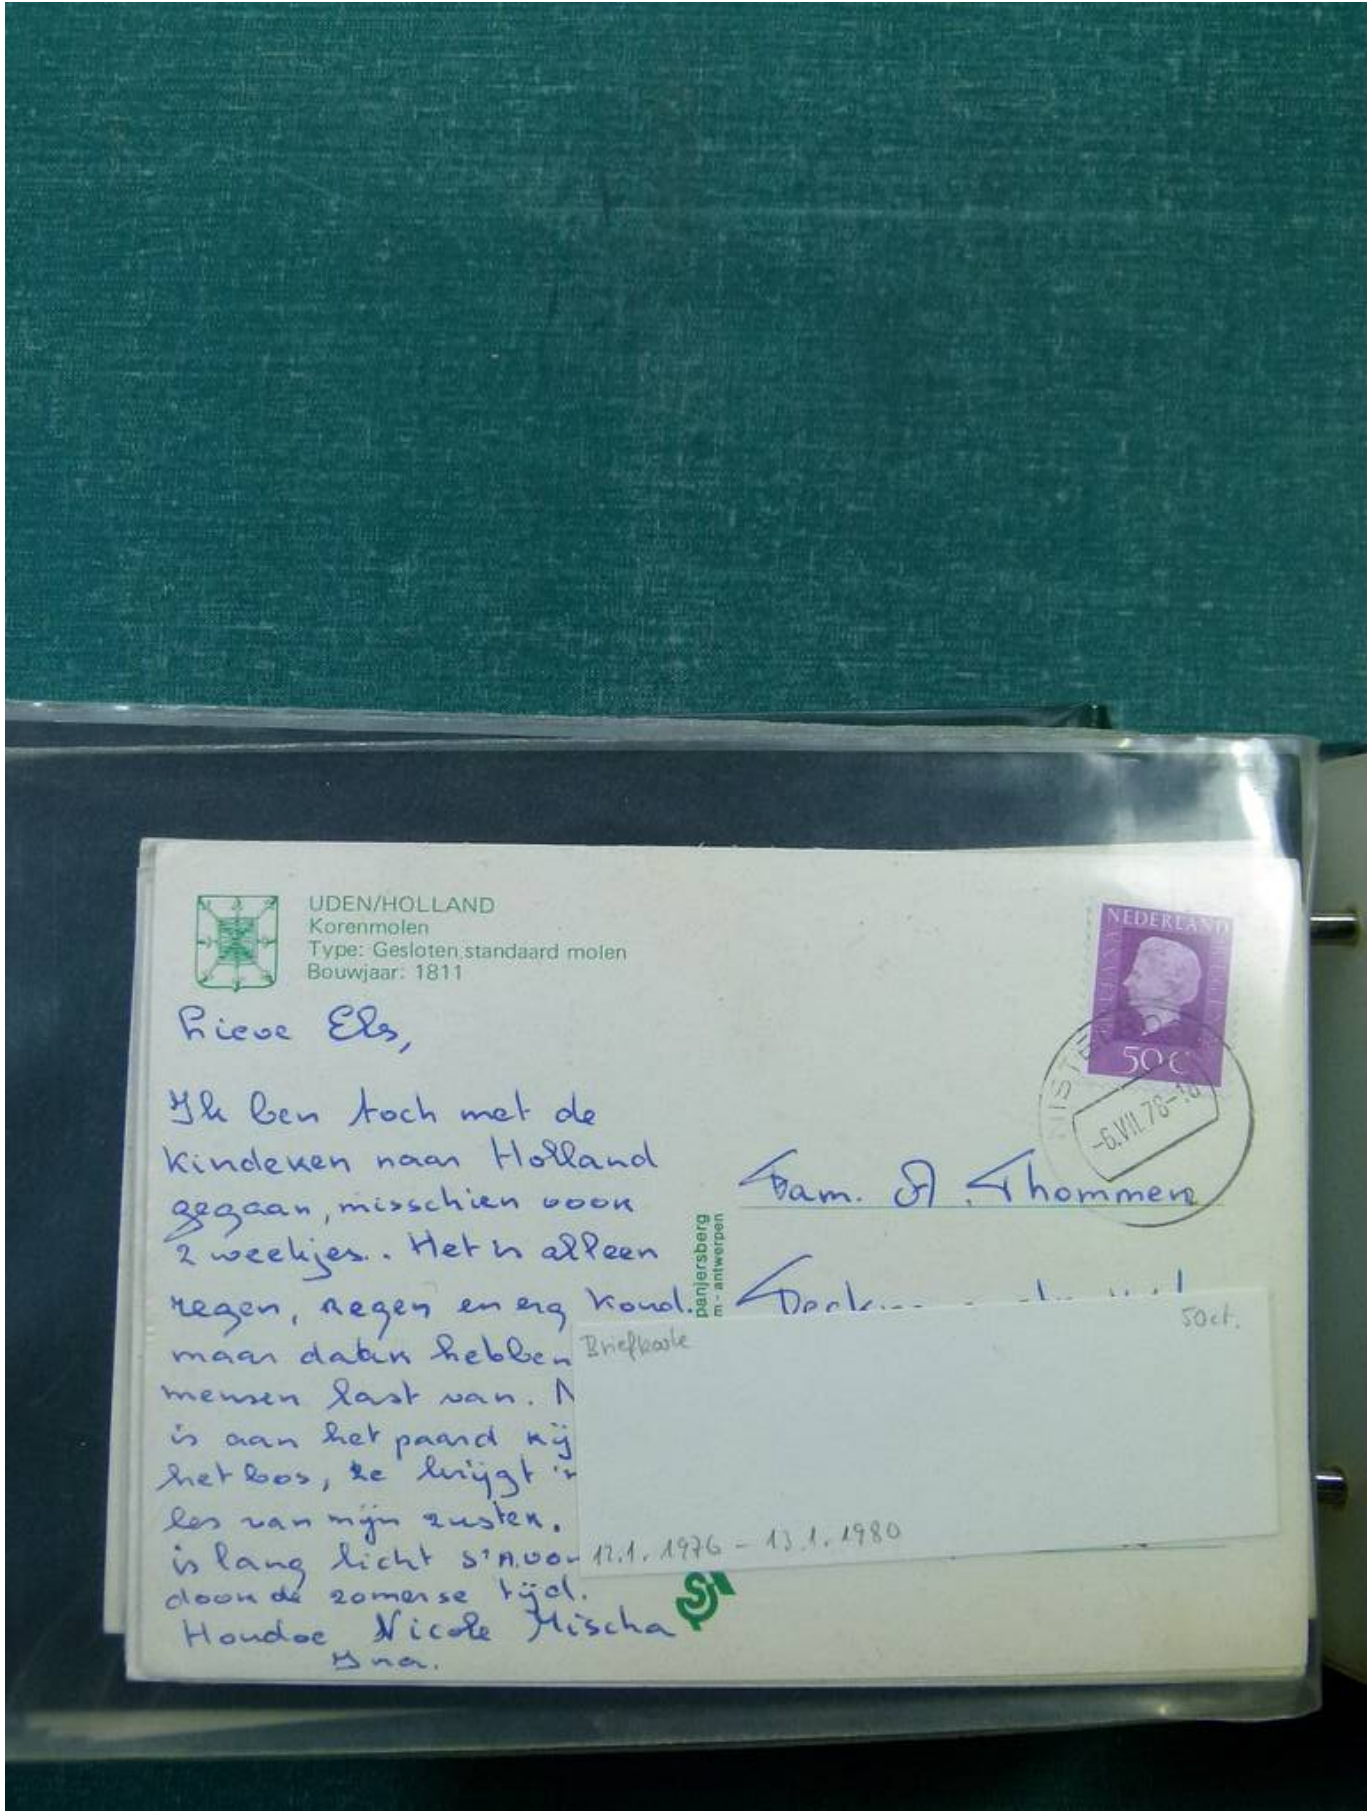 UDEN/HOLLAND
Korenmolen
Type: Gesloten standaard molen
Bouwjaar: 1811
Lieve Els,
Ik ben toch met de
kinderen naar Holland
gegaan, misschien voor
2 weekjes.. Het is alleen
regen, regen en erg koud.
maar hebben
mensen last van.
is aan het paard rij
het bos, ze krijgt
les van mijn zuster.
is lang licht s'Avon
door de zomerse tijd.
Houdoe Nicole Mischa
Ina.
panjersberg
m - antwerpen
NEDERLAND
50 c
-6.VII.78-18
Fam. A. Thommen
Briefkaart
50ct.
12.1.1976 - 13.1.1980